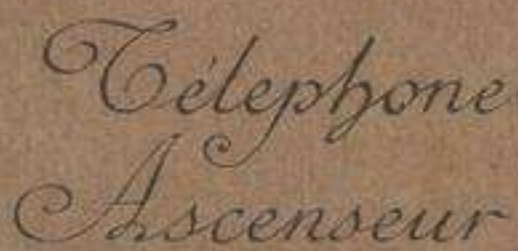 Télephone
Ascenseur